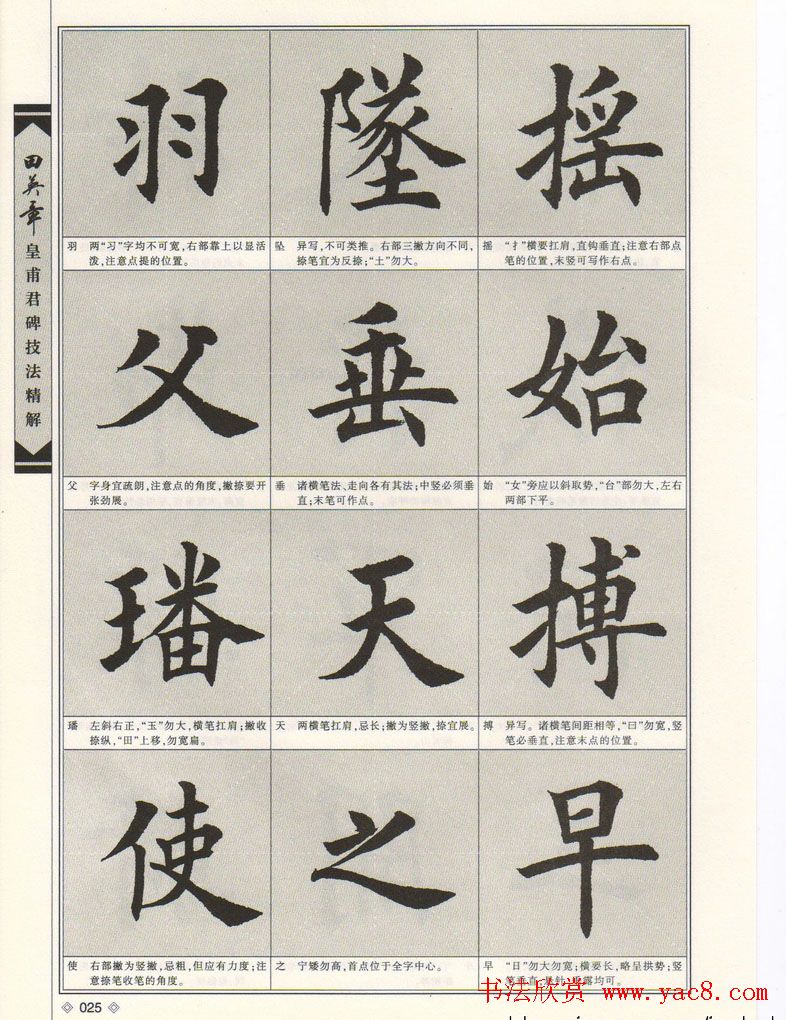 田英章
皇甫君碑技法精解
羽
墜
摇
羽 两“习”字均不可宽,右部靠上以显活
泼,注意点提的位置。
坠 异写,不可类推。右部三撇方向不同,
捺笔宜为反捺;“土”勿大。
摇 “扌”横要扛肩,直钩垂直;注意右部点
笔的位置,末竖可写作右点。
父
垂
始
父 字身宜疏朗,注意点的角度,撇捺要开
张劲展。
垂 诸横笔法、走向各有其法;中竖必须垂
直;末笔可作点。
始 “女”旁应以斜取势,“台”部勿大,左右
两部下平。
璠
天
搏
璠 左斜右正,“玉”勿大,横笔扛肩;撇收
捺纵,“田”上移,勿宽扁。
天 两横笔扛肩,忌长;撇为竖撇,捺宜展。
搏 异写。诸横笔间距相等,“曰”勿宽,竖
笔必垂直,注意末点的位置。
使
之
早
使 右部撇为竖撇,忌粗,但应有力度;注
意捺笔收笔的角度。
之 宁矮勿高,首点位于全字中心。
早 “日”勿大勿宽;横要长,略呈拱势;竖
笔垂直,悬针、垂露均可。
025
书法欣赏 www.yac8.com